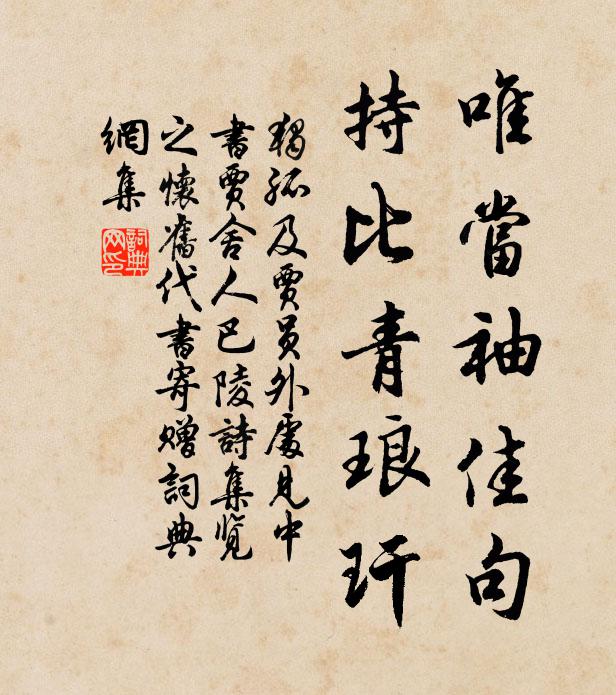 唯當袖佳句
持比青琅玕
獨孤及賈員外處見中
書賈舍人巴陵詩集覽
之懷舊代書寄贈詞典
網集
詞典網印